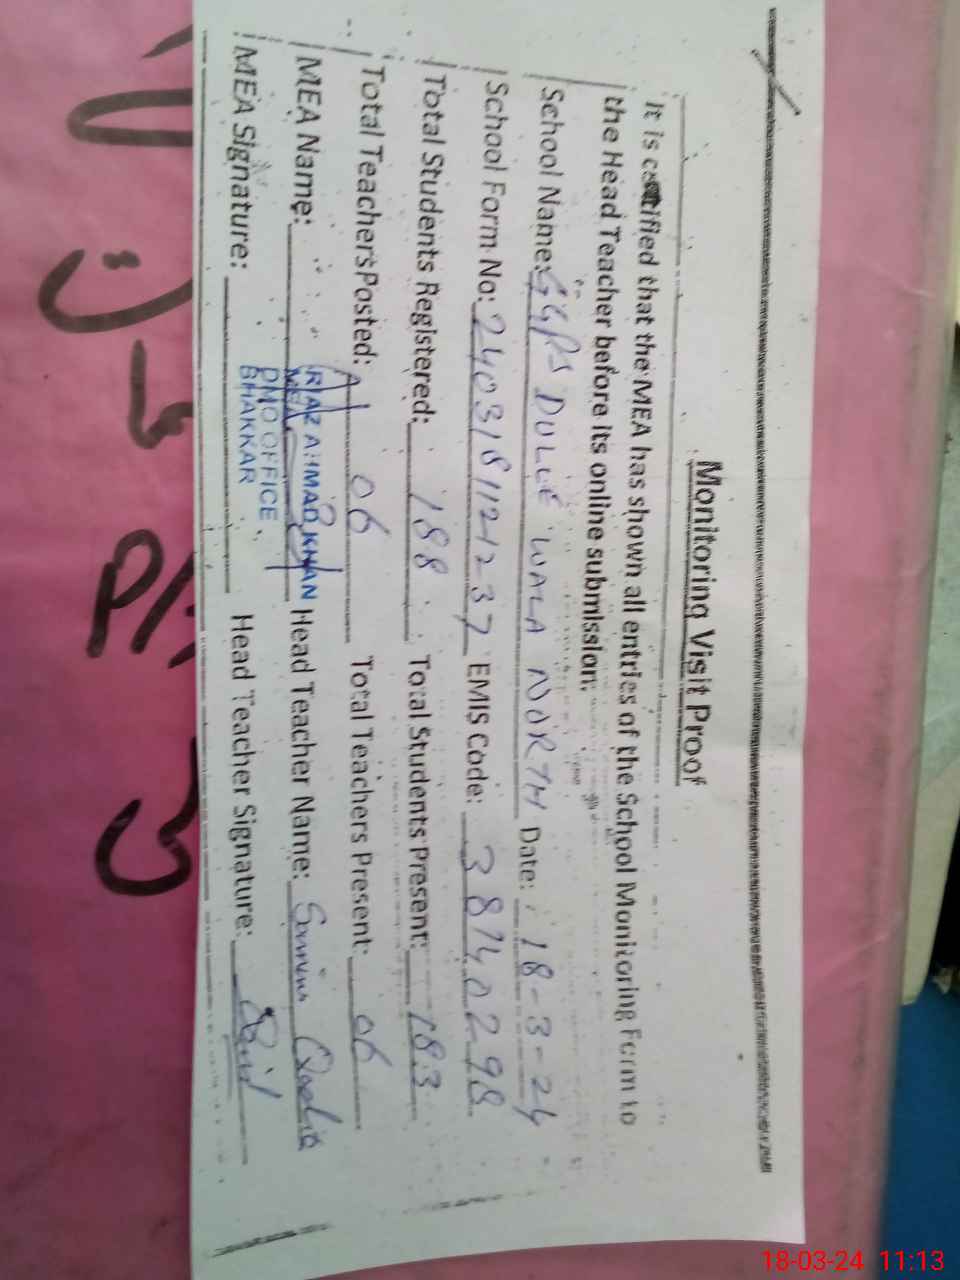 Monitoring Visit Proof
It is certified that the MEA has shown all entries of the School Monitoring Form to
the Head Teacher before its online submission.
School Name: GGPS DULLE WALA NORTH Date: 18-3-24
School Form No: 2403181121237 EMIS Code: 38140298
Total Students Registered: 188 Total Students Present: 183
Total Teachers Posted: 06 Total Teachers Present: 06
MEA Name: RIAZ AHMAD KHAN Head Teacher Name:
MEA
DMO OFFICE
BHAKKAR
MEA Signature: Head Teacher Signature:
18-03-24 11:13